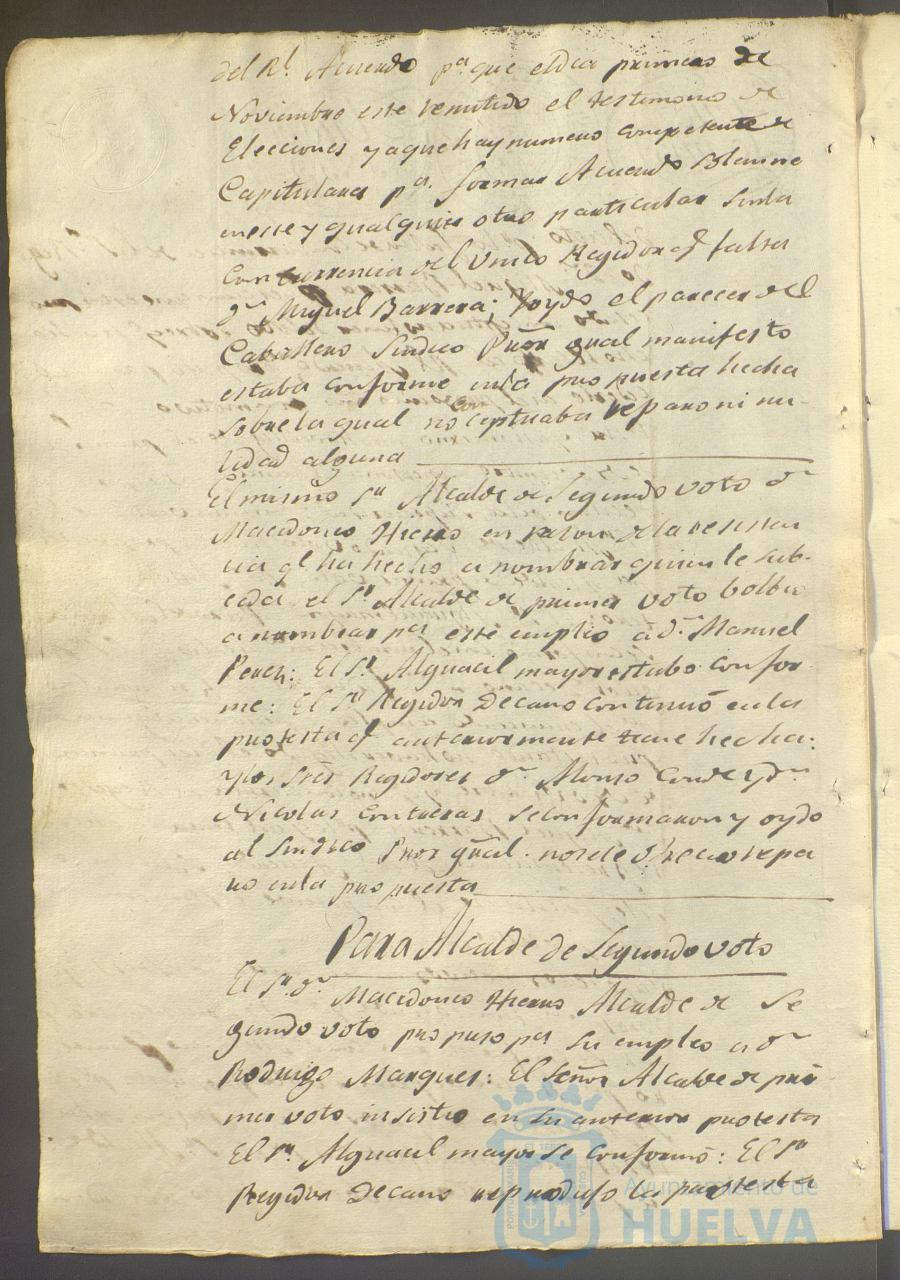 del Rl. Acuerdo pa. que el dia primero de
Noviembre este remitido el testimonio de
Elecciones y aque hay numero competente de
Capitulares pa. formar Acuerdo
en este y qualquier otro particular sin la
concurrencia del Unico Regidor q falta
Dn. Miguel Barrera; Y oydo el parecer del
Caballero Sindico Pror gral manifesto
estaba conforme en la propuesta hecha
sobre la qual no conceptuaba reparo ni nu-
lidad alguna
El mismo Sr Alcalde de Segundo voto Dn
Macedonio Hierro en razon de la
q ha hecho a nombrar quien le sub-
ceda el Sr. Alcalde de primer voto bolbio
a nombrar pa este empleo a Dn. Manuel
Perez: El Sr. Alguacil mayor estubo confor-
me: El Sr Regidor Decano continuó en la
protesta q anteriormente tiene hecha:
y los Sres Regidores Dn. Alonso Conde y Dn
Nicolas Contreras se conformaron y oydo
al Sindico Pror gral. no se le ofrecio repa
ro en la propuesta
Para Alcalde de Segundo voto
El Sr. Dn. Macedonio Hierro Alcalde de Se
gundo voto propuso pa su empleo a Dn
Rodrigo Marquez: El Señor Alcalde de pri-
mer voto insistio en su anterior protesta
El Sr. Alguacil mayor se conformó: El Sr
Regidor Decano reprodujo la protesta
Ayuntamiento de
HUELVA